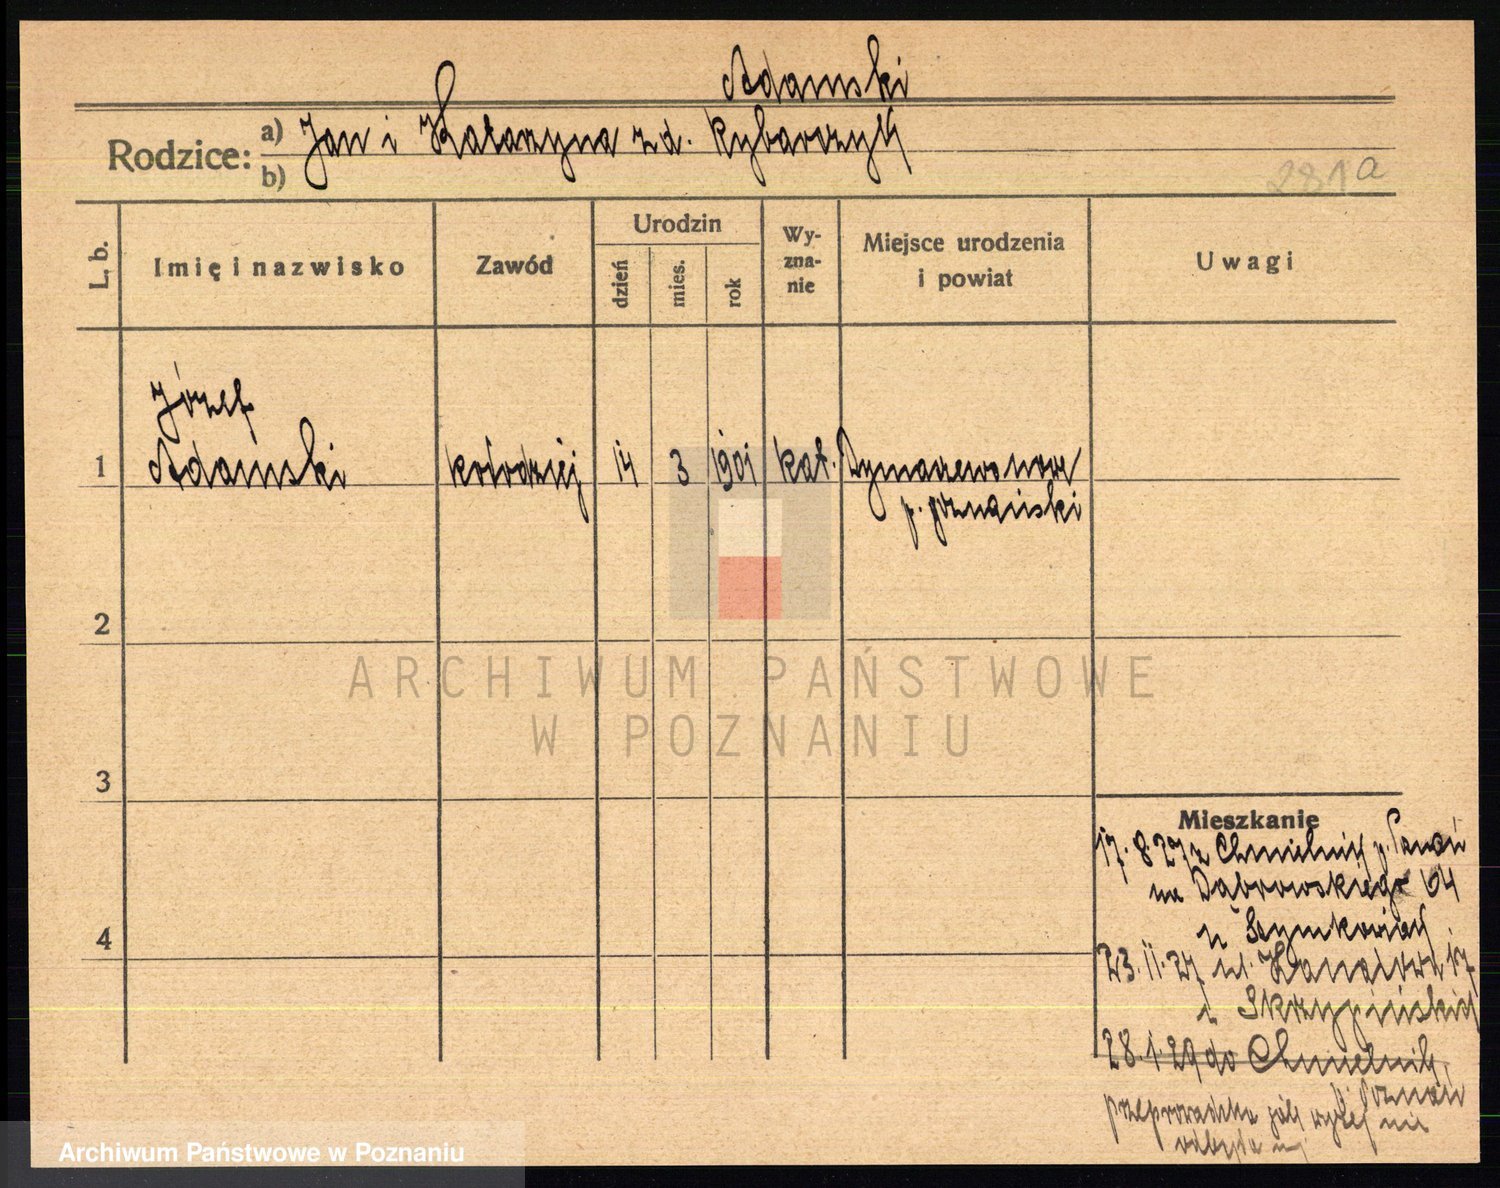 Adamski
Rodzice: a) Jan i Katarzyna z d. Rybarczyk
b)
281a
L. b.
Imię i nazwisko
Zawód
Urodzin
dzień
mies.
rok
Wy-
zna-
nie
Miejsce urodzenia
i powiat
Uwagi
Józef
1 Adamski kołodziej 14 3 1901 kat. Dymaczewo nowe
p. poznański
2
ARCHIWUM PAŃSTWOWE
W POZNANIU
3
Mieszkanie
17.8.27 z Chmielnik p. Poznań
na Dąbrowskiego 64
4
u Szymkowiak
23.11.27 ul. 17
u Skrzypińskich
28.1.29 do Chmelnik,
Poznań
przeprowadzka jak wyżej nie
odbyła
Archiwum Państwowe w Poznaniu